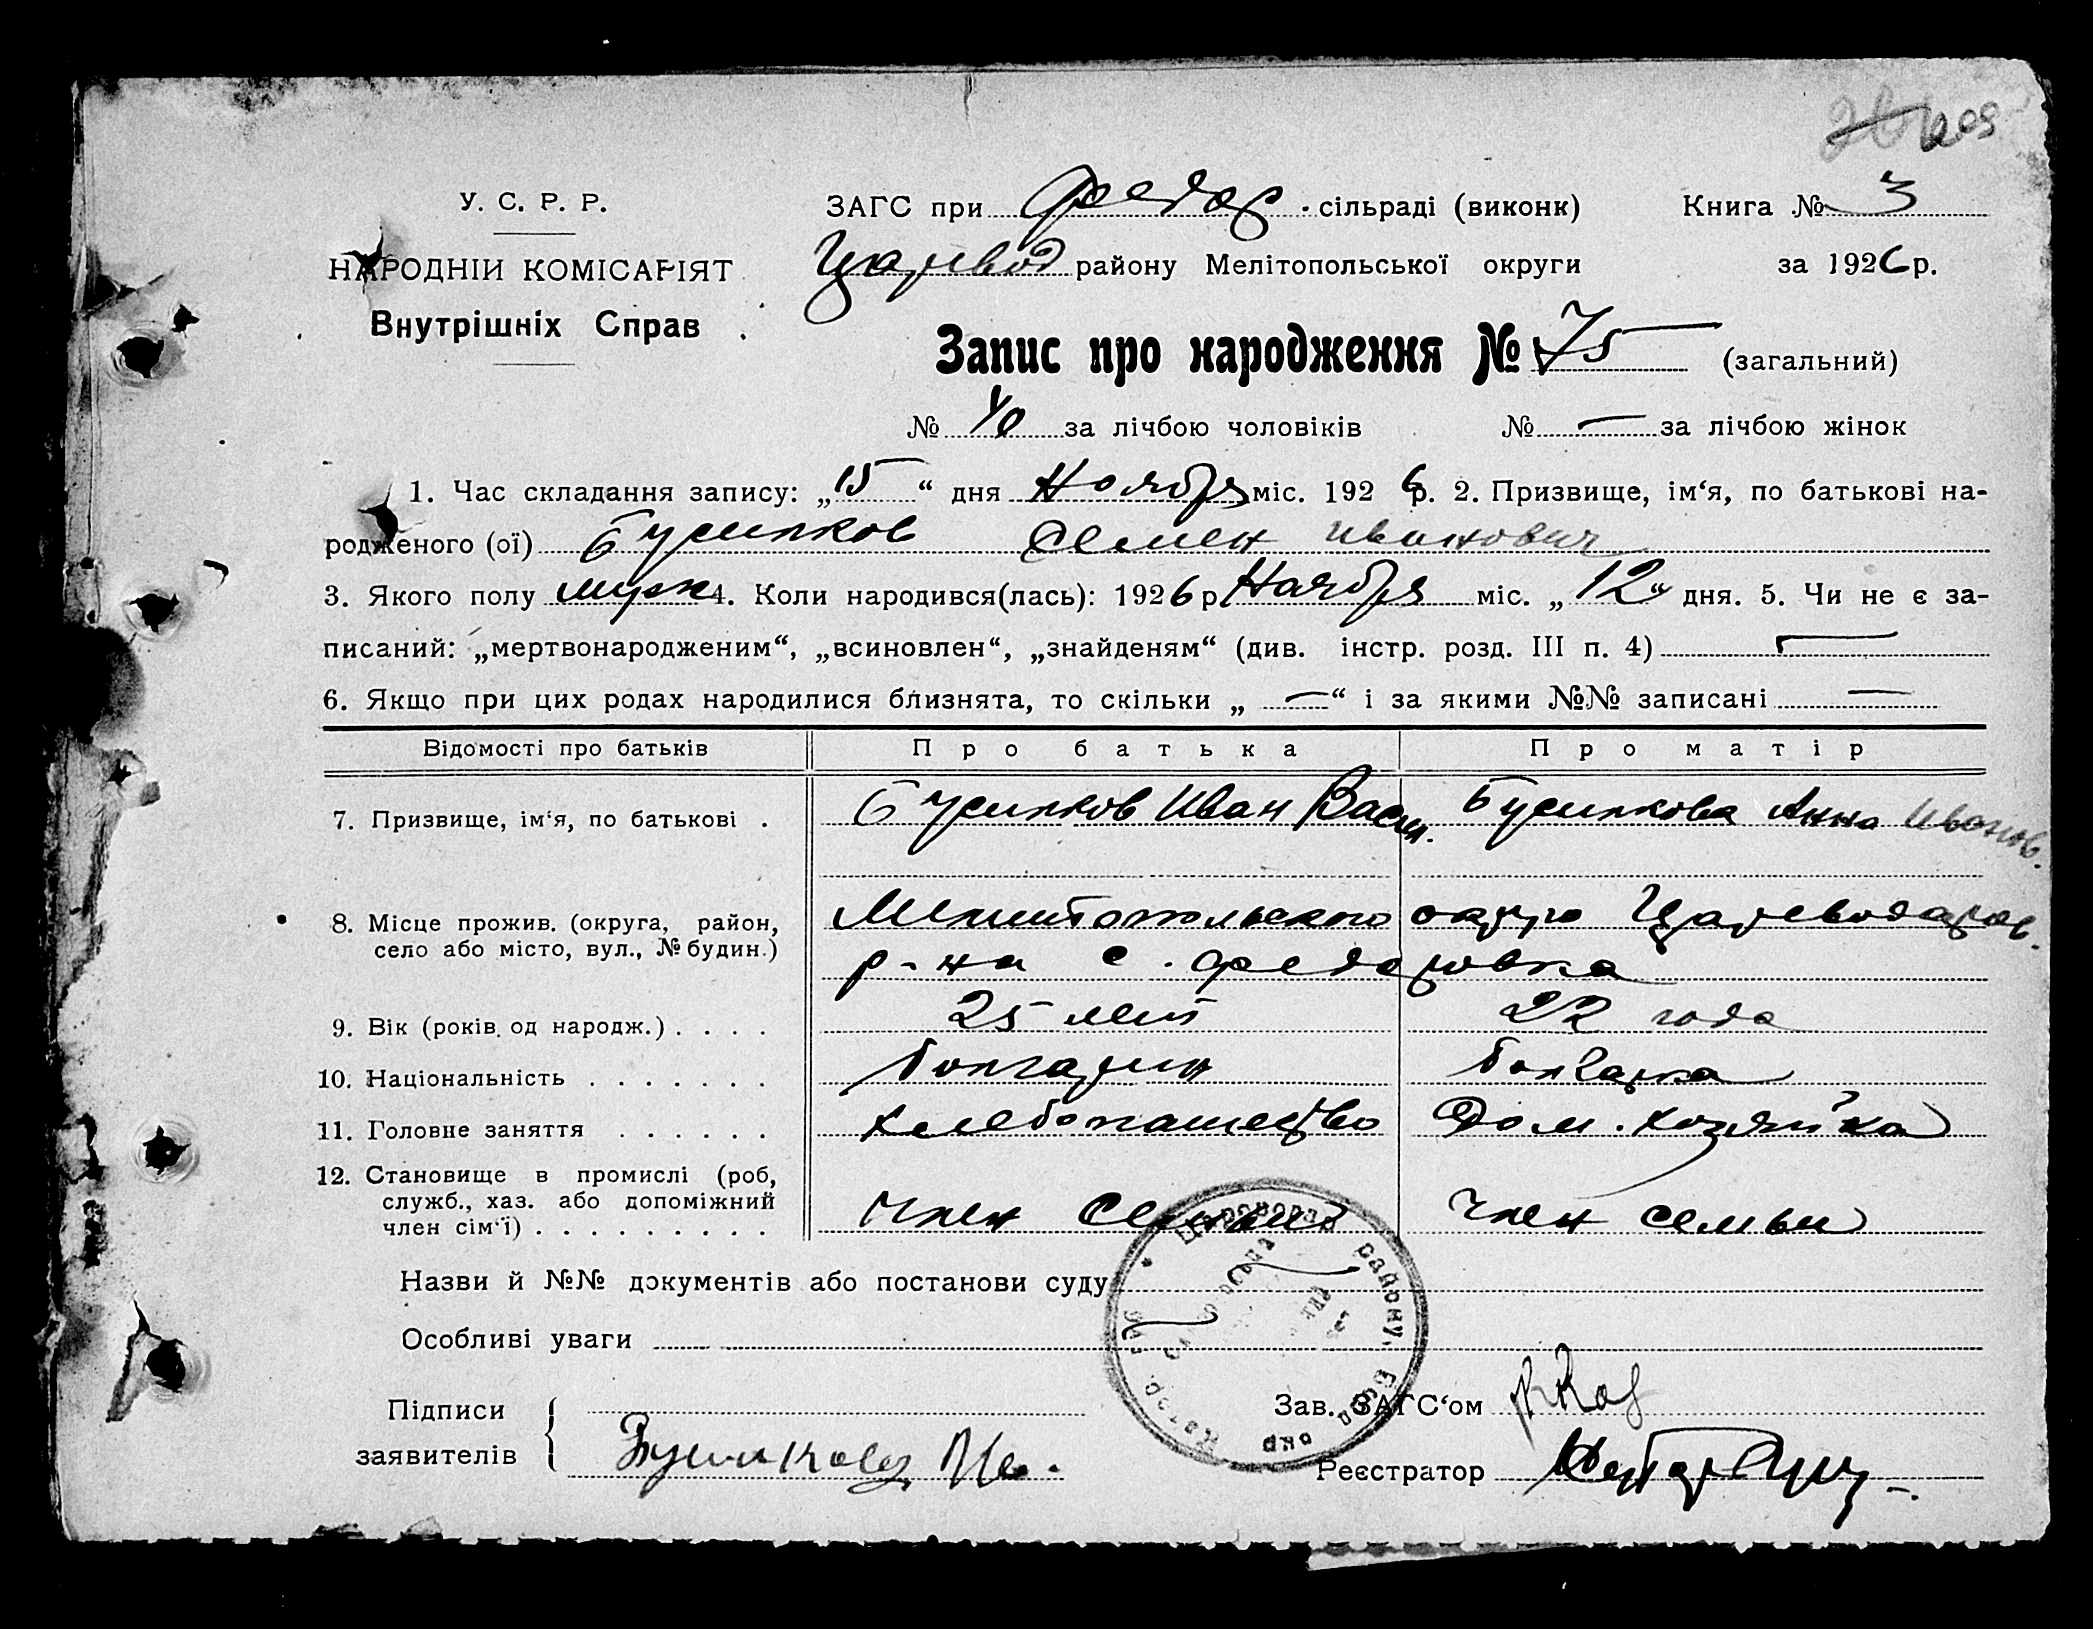 У. С. Р. Р.
НАРОДНІЙ КОМІСАРІЯТ
Внутрішніх Справ
ЗАГС при Федор. сільраді (виконк) Книга № 3
Царевод району Мелітопольської округи за 1926 р.
Запис про народження № 75 (загальний)
№ 40 за лічбою чоловіків № — за лічбою жінок
1. Час складання запису: „15“ дня Ноября міс. 1926 р. 2. Призвище, ім‘я, по батькові на-
родженого (ої) Бусилков Семен Иванович
3. Якого полу муж 4. Коли народився(лась): 1926 р. Ноября міс. „12“ дня. 5. Чи не є за-
писаний: „мертвонародженим“, „всиновлен“, „знайденям“ (див. інстр. розд. III п. 4) —
6. Якщо при цих родах народилися близнята, то скільки „ — “ і за якими №№ записані —
Відомості про батьків Про батька Про матір
7. Призвище, ім‘я, по батькові . Бусилков Иван Васил. Бусилкова Анна Иванов.
8. Місце прожив. (округа, район, Мелитопольского округа Цареводаров.
село або місто, вул., № будин.) р-на с. Федоровка
9. Вік (років од народж.) . . . . 25 лет 22 года
10. Національність . . . . . . . болгарин болгарка
11. Головне заняття . . . . . . хлебопашество Дом. хозяйка
12. Становище в промислі (роб,
служб., хаз. або допоміжний
член сім‘ї) . . . . . . . . . Член семьи Член семьи
Назви й №№ документів або постанови суду
Особливі уваги
Підписи
заявителів Бусилков Ив.
Зав. ЗАГС‘ом
Реєстратор
району,
окр